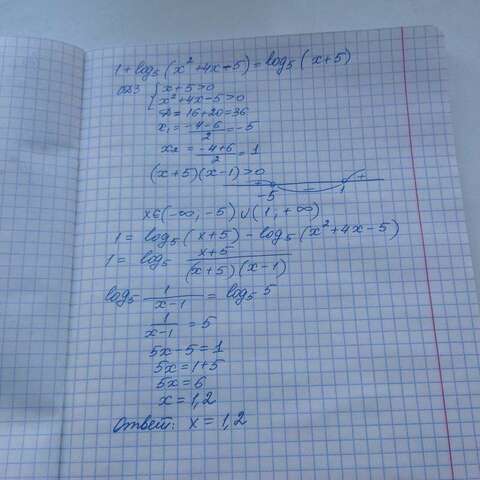 1 + log₅(x² + 4x - 5) = log₅(x + 5)
ОДЗ { x + 5 > 0
{ x² + 4x - 5 > 0
D = 16 + 20 = 36
x₁ = (-4 - 6)/2 = -5
x₂ = (-4 + 6)/2 = 1
(x + 5)(x - 1) > 0
+ - +
-5 1
x ∈ (-∞, -5) ∪ (1, +∞)
1 = log₅(x + 5) - log₅(x² + 4x - 5)
1 = log₅ (x + 5)/((x + 5)(x - 1))
log₅ 1/(x - 1) = log₅ 5
1/(x - 1) = 5
5x - 5 = 1
5x = 1 + 5
5x = 6
x = 1,2
Ответ: x = 1,2